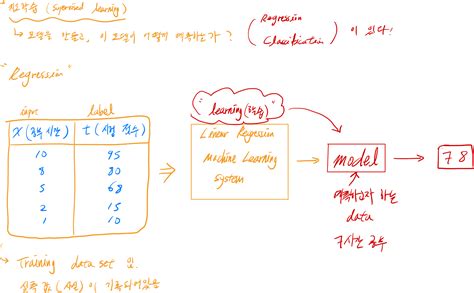 지도학습 (supervised learning)
↳ 모델을 만들고, 이 모델이 어떻게 예측하는가? ( Regression
Classification ) 이 있다!
"Regression"
input label
x (공부시간) t (시험 점수)
10 95
8 80
5 68
2 15
1 10
"learning (학습)"
Linear Regression
Machine Learning
system
model
78
예측하고자 하는
data
7시간 공부
↳ Training data set 임.
실측 값 (사실) 이 기록되어있음